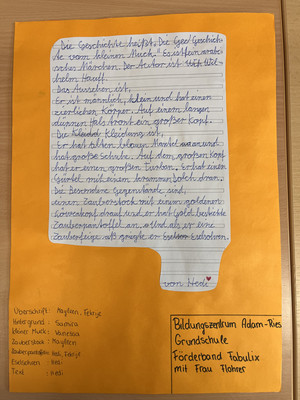 Die Geschichte heißt: Die Geschich-
te vom kleinen Muck. Es ist ein arabi-
sches Märchen. Der Autor ist Wil-
helm Hauff.
Das Aussehen ist,
Er ist männlich, klein und hat einen
zierlichen Körper. Auf einem langen
dünnen Hals tront ein großer Kopf.
Die Kleidung ist,
Er hat einen blauen Mantel an und
hat große Schuhe. Auf dem großen Kopf
hat er einen großen Turban. Er hat einen
Gürtel mit einem krummen Dolch dran.
Die Besondere Gegenstände sind,
einen Zauberstock mit einem goldenen
Löwenkopf drauf und er hat Gold bestickte
Zauberpantoffel an. Und als er eine
Zauberfeige aß kriegte er Eselsohren.
von Hedi
Überschrift: Fehije
Hintergrund: Samira
kleiner Muck: Vanessa
Zauberstock: Mayleen
Zauberpantoffeln: Hedi,
Eselsohren: Hedi
Text: Hedi
Bildungszentrum Adam-Ries
Grundschule
Förderband Tabulix
mit Frau Flohrer